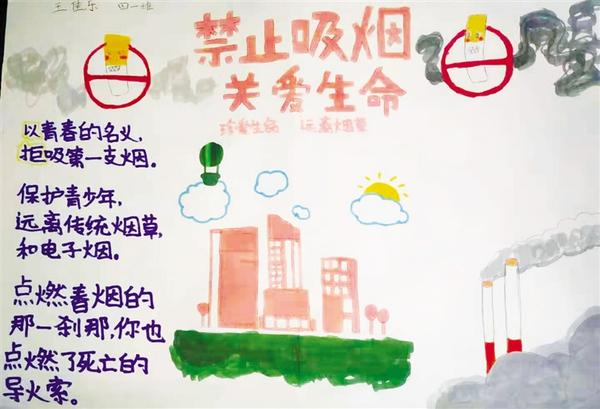 王佳乐 四一班
禁止吸烟
关爱生命
珍爱生命 远离烟草
以青春的名义,
拒吸第一支烟。
保护青少年,
远离传统烟草,
和电子烟。
点燃香烟的
那一刹那,你也
点燃了死亡的
导火索。